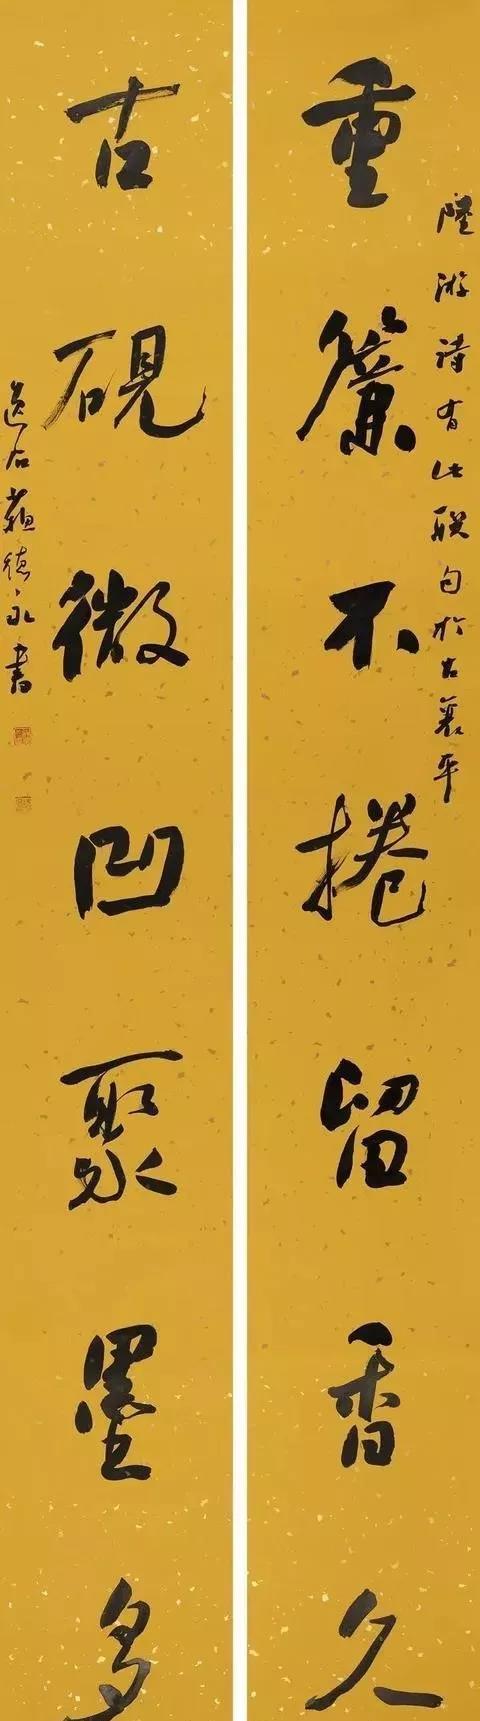 重簾不捲留香久
陸游詩有此联句於古襄平
古硯微凹聚墨多
蘇德永書